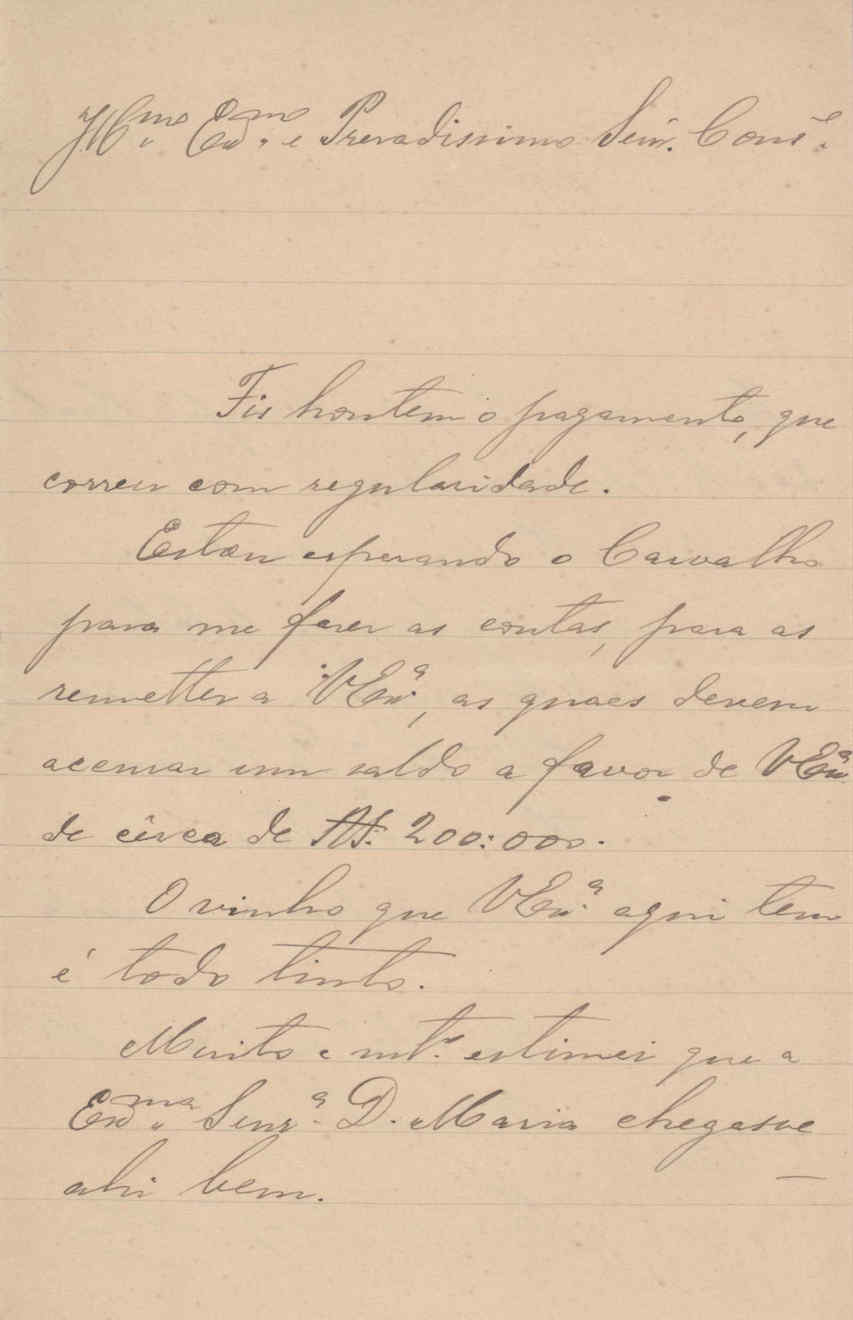 Ill.mo Ex.mo e Presadissimo Sñr. Cons.º
Fis hontem o pagamento, que
correu com regularidade.
Estou esperando o Carvalho
para me fazer as contas, para as
remetter a V Ex.ª, as quaes devem
accusar um saldo a favor de V Ex.ª
de cêrca de Rs. 200:000.
O vinho que V Ex.ª aqui tem
é todo tinto.
Muito e mt.º estimei que a
Ex.ma Senr.ª D. Maria chegasse
ahi bem. —